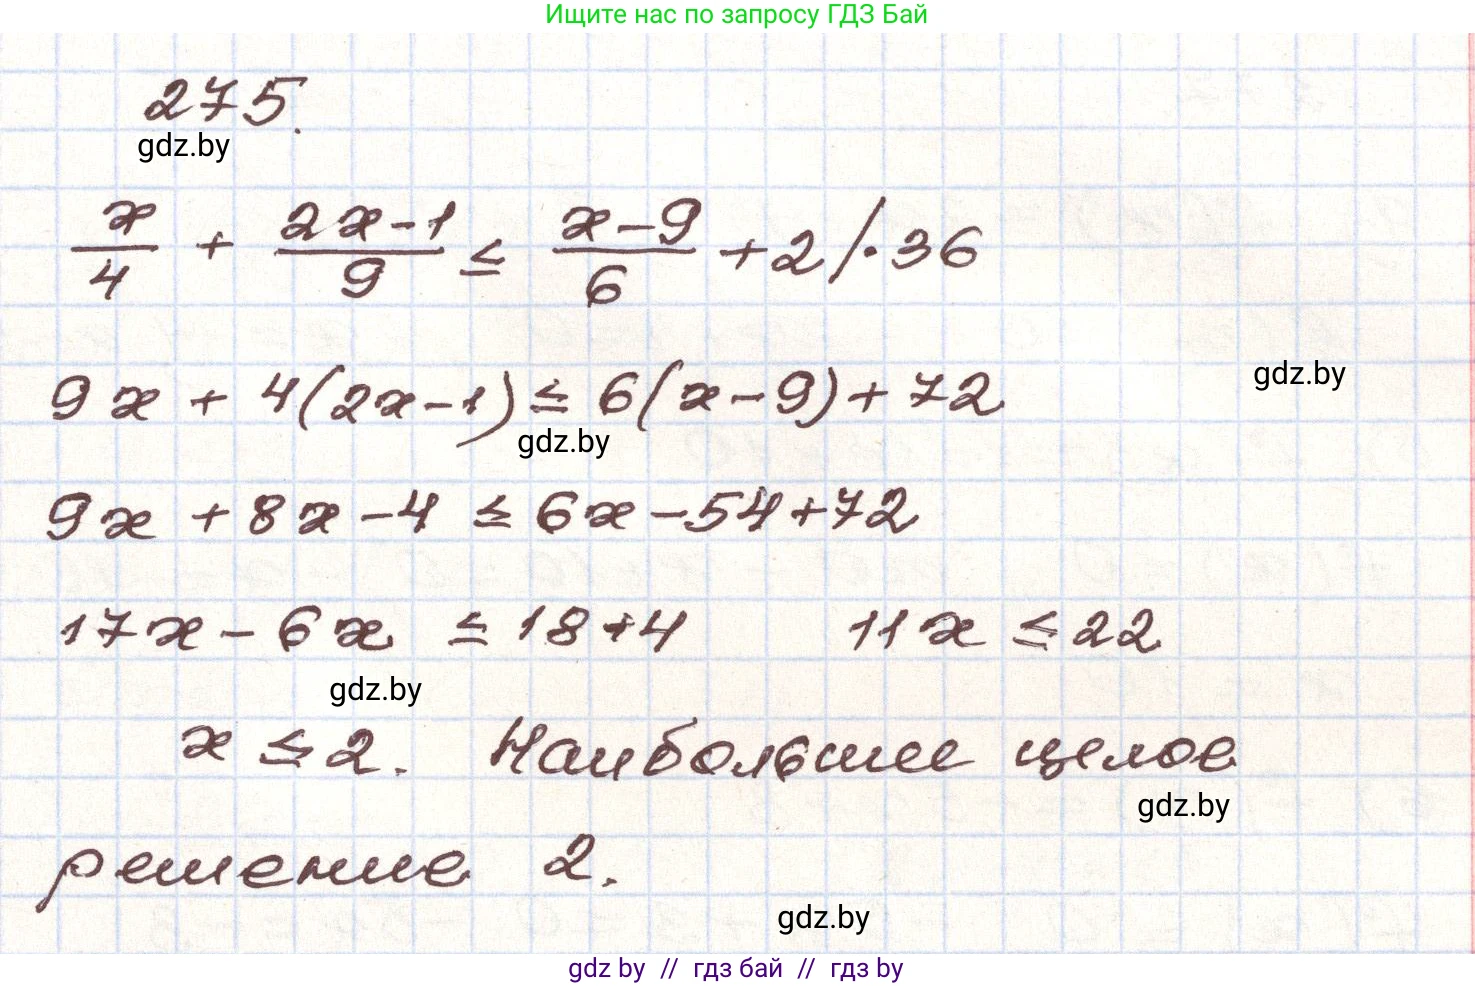 Ищите нас по запросу ГДЗ Бай
275.
gdz.by
x/4 + (2x-1)/9 ≤ (x-9)/6 + 2 /·36
gdz.by
9x + 4(2x-1) ≤ 6(x-9)+72
gdz.by
9x + 8x - 4 ≤ 6x - 54 + 72
17x - 6x ≤ 18+4 11x ≤ 22
gdz.by
x ≤ 2. Наибольшее целое
gdz.by
решение 2.
gdz.by
gdz by // гдз бай // гдз by